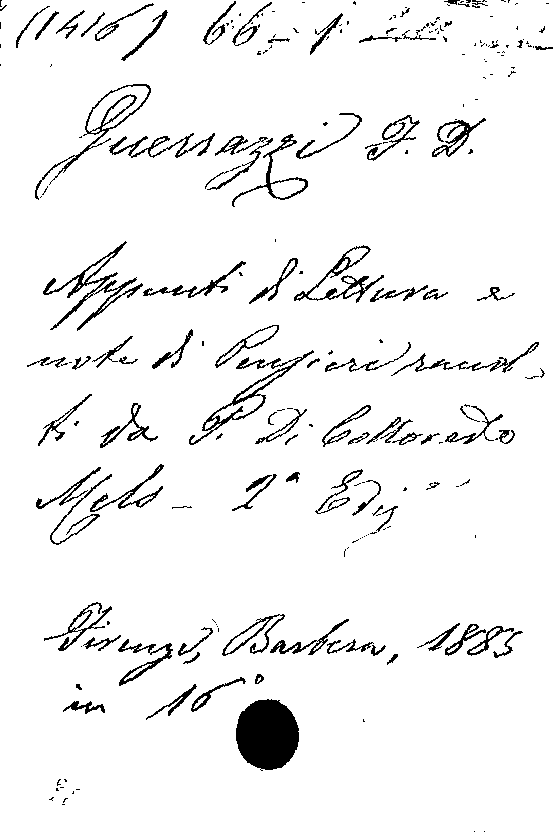 (1416) 66
Guerrazzi F. D.
Appunti di Lettura e
note di Pensieri raccol-
ti da P. Di Colloredo
Mels - 2ª Ediz
Firenze, Barbera, 1885
in 16°